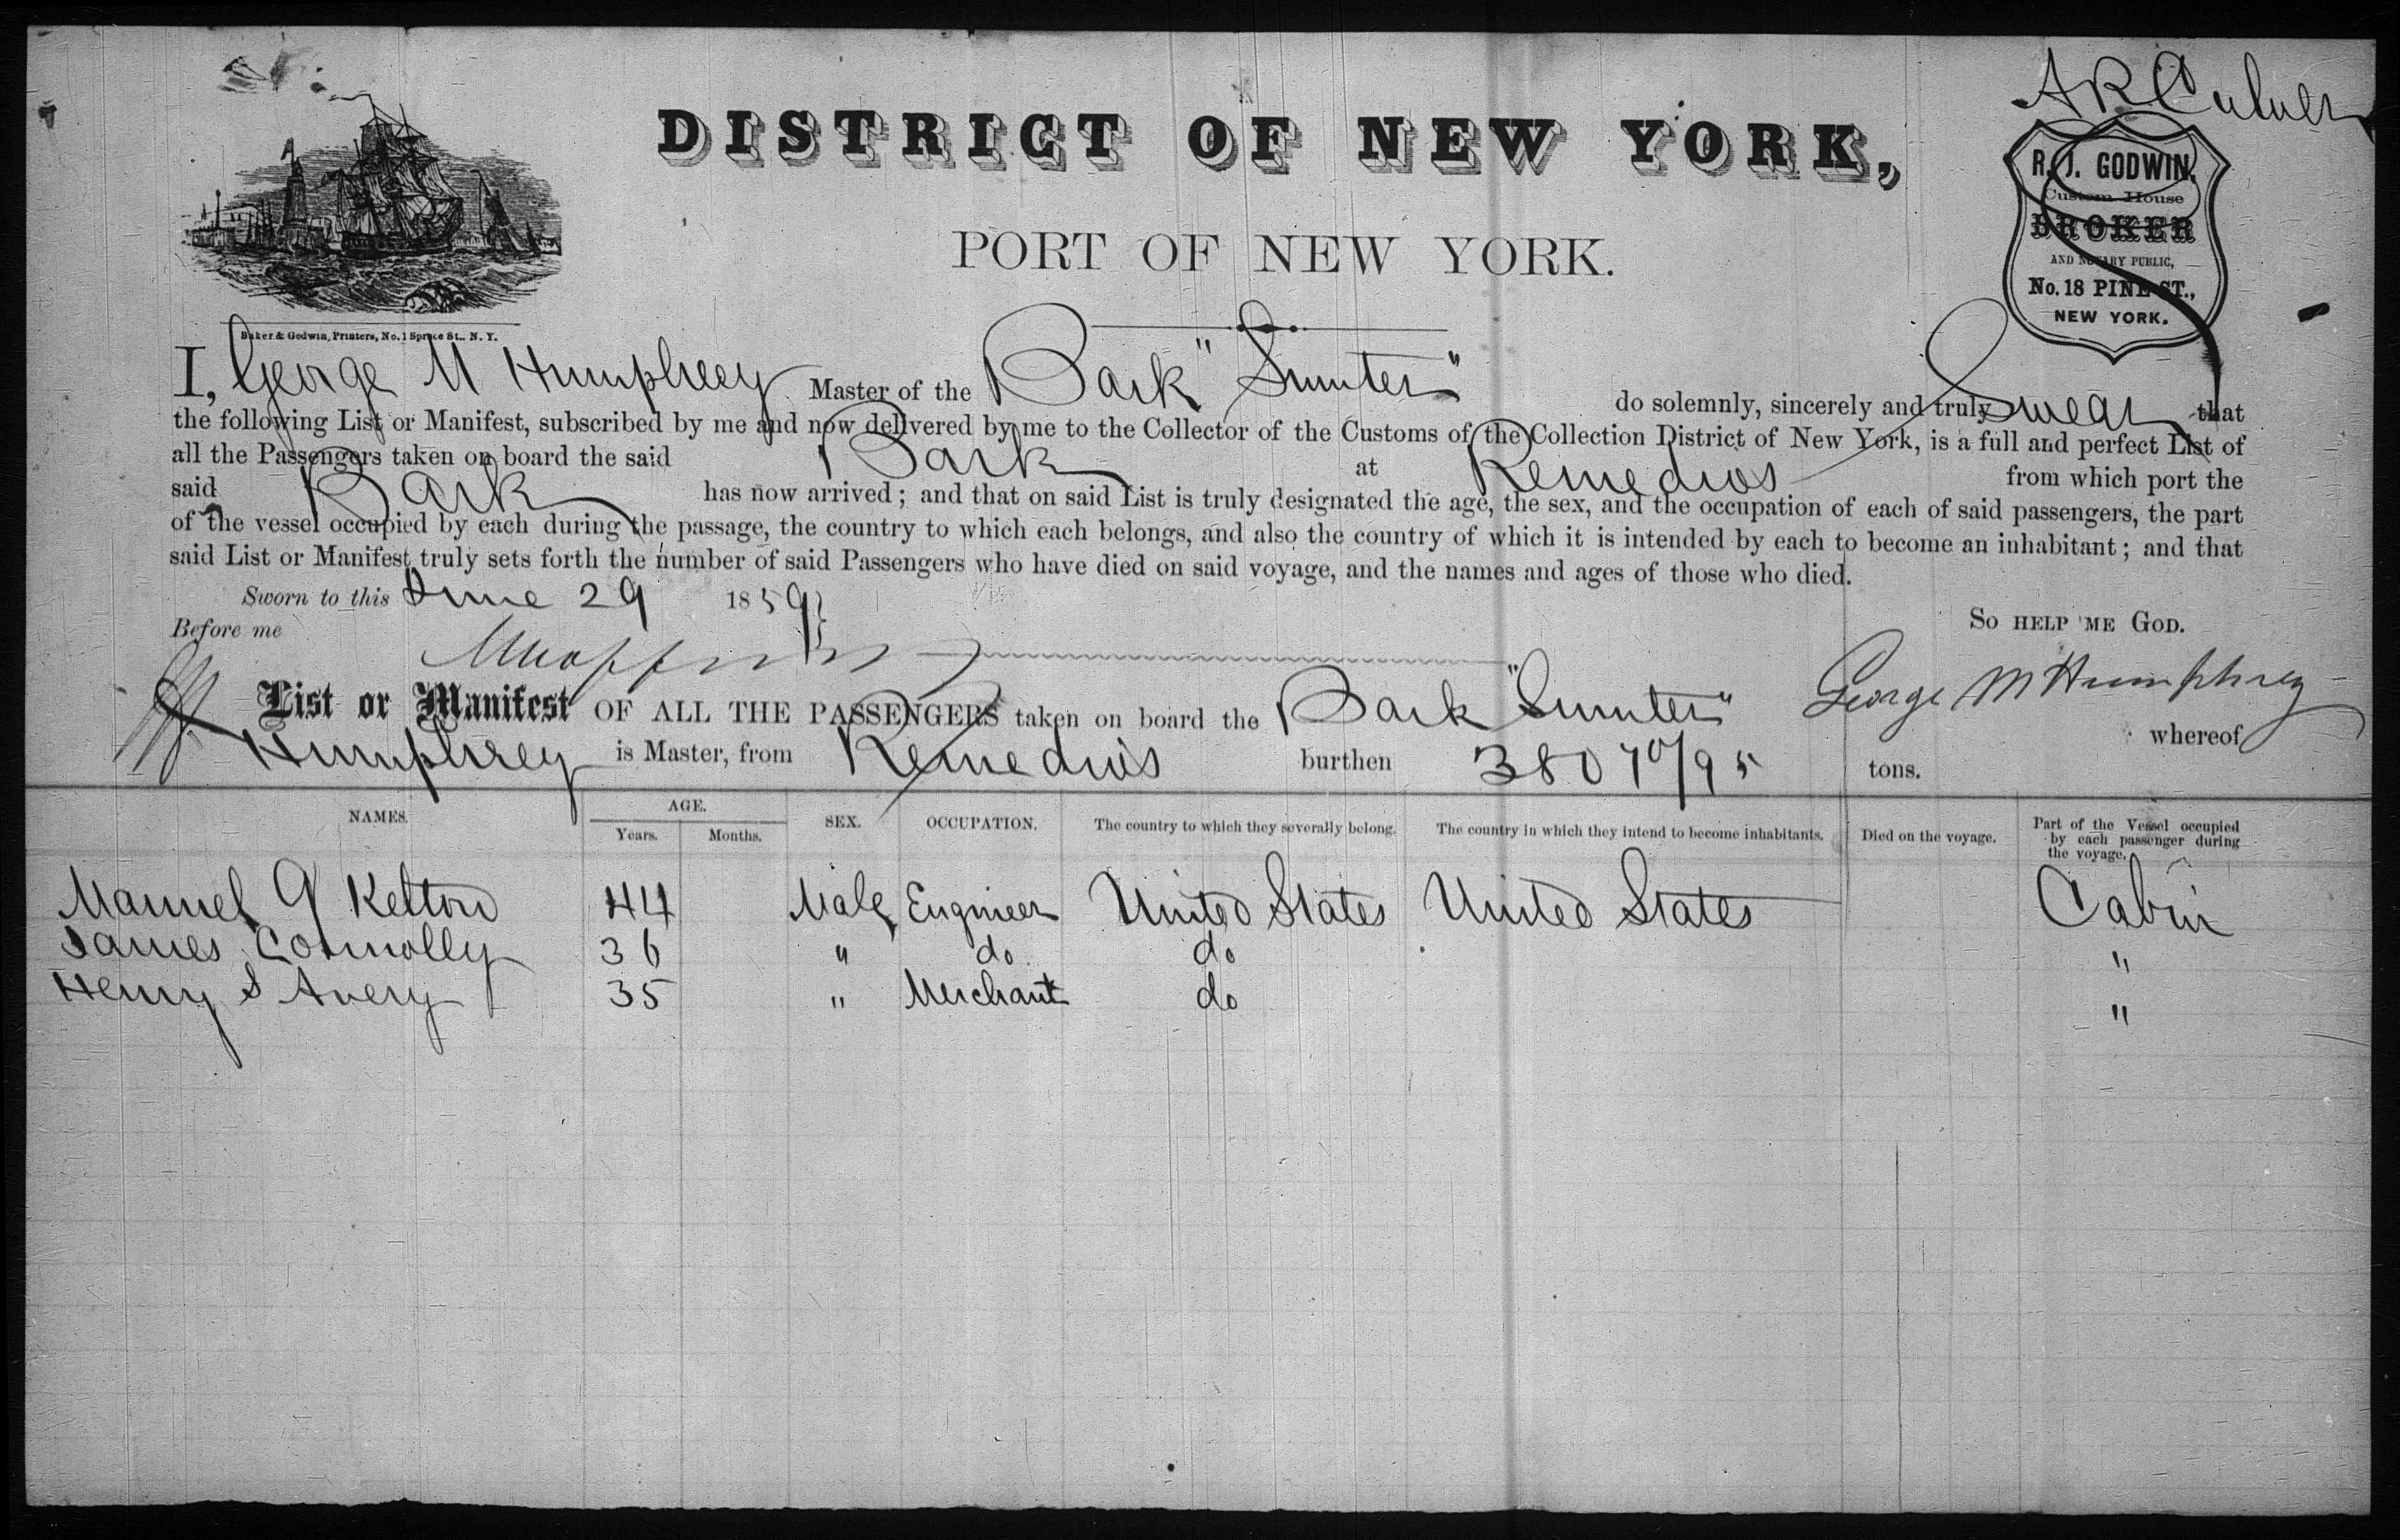 A R Culver
DISTRICT OF NEW YORK,
PORT OF NEW YORK.
R. J. GODWIN,
Custom House
BROKER
AND NOTARY PUBLIC,
No. 18 PINE ST.,
NEW YORK.
Baker & Godwin, Printers, No. 1 Spruce St., N. Y.
I, George M Humphrey Master of the Bark "Sumter" do solemnly, sincerely and truly Swear that
the following List or Manifest, subscribed by me and now delivered by me to the Collector of the Customs of the Collection District of New York, is a full and perfect List of
all the Passengers taken on board the said Bark at Remedios from which port the
said Bark has now arrived; and that on said List is truly designated the age, the sex, and the occupation of each of said passengers, the part
of the vessel occupied by each during the passage, the country to which each belongs, and also the country of which it is intended by each to become an inhabitant; and that
said List or Manifest truly sets forth the number of said Passengers who have died on said voyage, and the names and ages of those who died.
Sworn to this June 29 1859
So HELP ME GOD.
Before me
George M Humphrey
List or Manifest OF ALL THE PASSENGERS taken on board the Bark "Sumter" whereof
Humphrey is Master, from Remedios burthen 380 70/95 tons.
NAMES. AGE. SEX. OCCUPATION. The country to which they severally belong. The country in which they intend to become inhabitants. Died on the voyage. Part of the Vessel occupied by each passenger during the voyage.
Years. Months.
Manuel Kelton 44 Male Engineer United States United States Cabin
James Connolly 36 " do do "
Henry S Avery 35 " Merchant do "